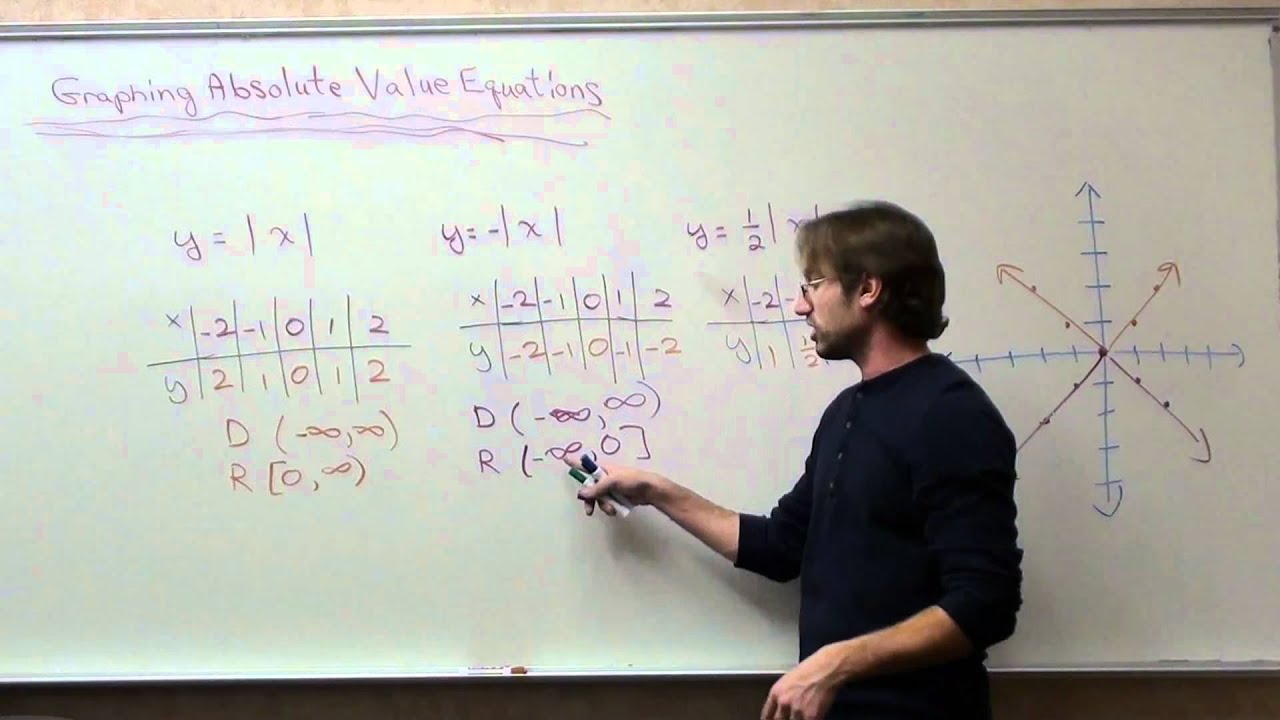 Graphing Absolute Value Equations
y = |x|
x -2 -1 0 1 2
y 2 1 0 1 2
D (-∞,∞)
R [0,∞)
y=-|x|
x -2 -1 0 1 2
y -2 -1 0 -1 -2
D (-∞,∞)
R (-∞,0]
y=1/2|x|
x -2
y 1 1/2